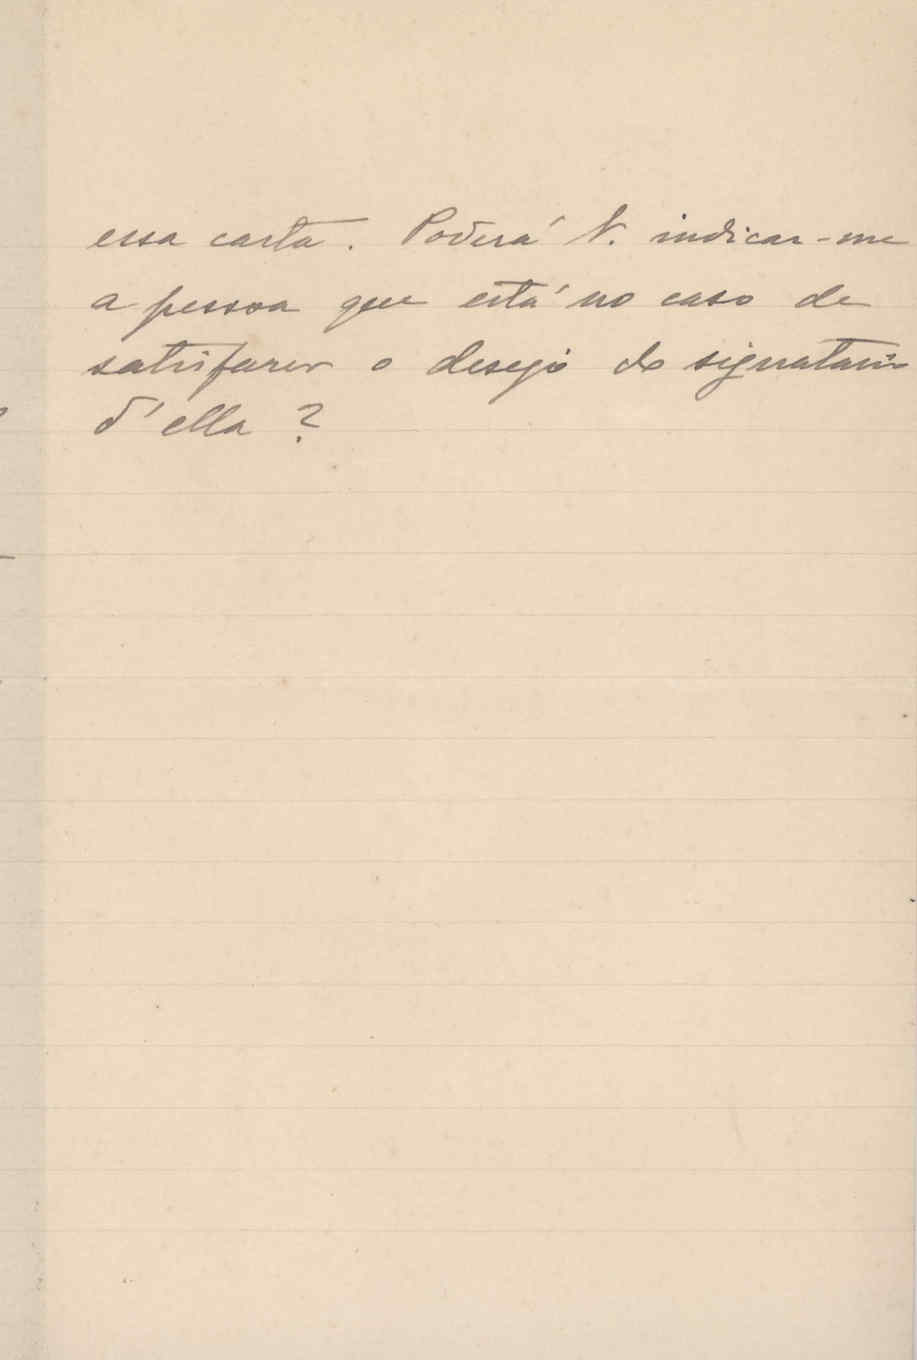 essa carta. Poderá V. indicar-me
a pessoa que está no caso de
satisfazer o desejo do signatario
d'ella?